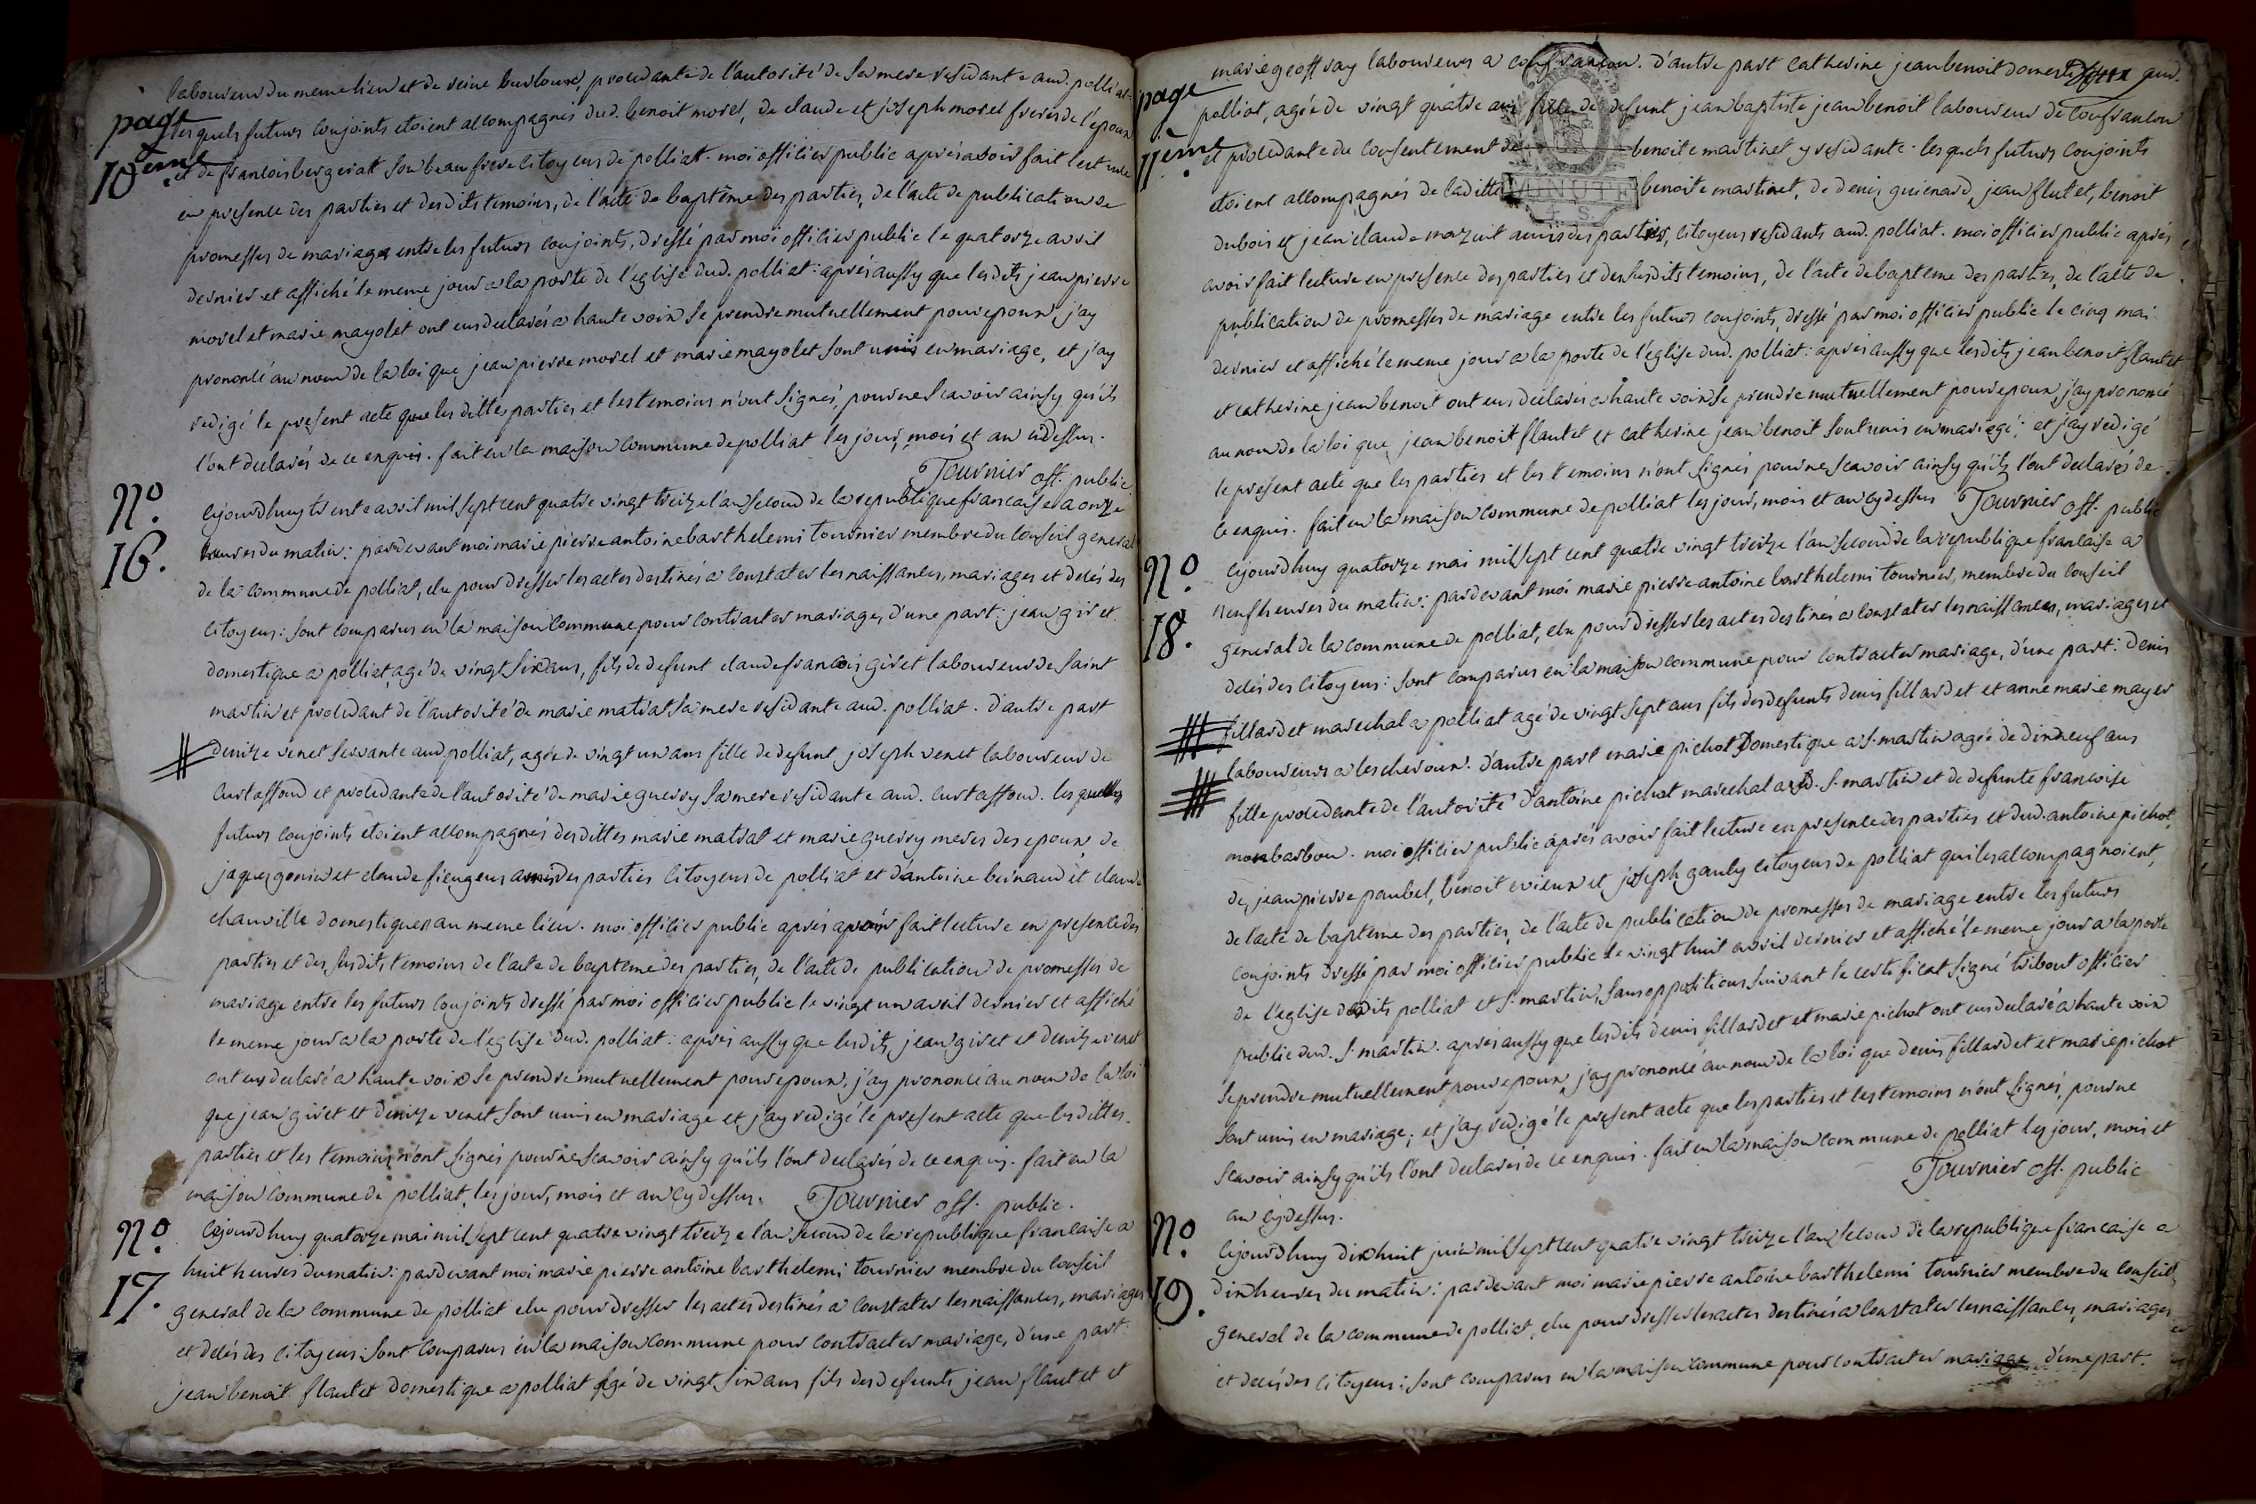 laboureur du meme lieu et de reine burtoure, procedante de l'autorité de sa mere residante aud. polliat
page
les quels futurs conjoints etoient accompagnés dud. benoit morel, de claude et joseph morel freres de l'epoux
10eme
et de francois bergerat son beau frere citoyens de polliat. moi officier public aprés avoir fait lecture
en presence des parties et desdits temoins, de l'acte de baptême des parties, de l'acte de publication de
promesses de mariage entre les futurs conjoints, dressé par moi officier public le quatorze avril
dernier et affiché le meme jour a la porte de l'eglise dud. polliat: aprés aussy que lesdits jean pierre
morel et marie mayolet ont eus declarés a haute voix se prendre mutuellement pour epoux j'ay
prononcé au nom de la loi que jean pierre morel et marie mayolet sont unis en mariage, et j'ay
redigé le present acte que les dittes parties et les temoins n'ont signés, pour ne scavoir ainsy qu'ils
l'ont declarés de ce enquis. fait en la maison commune de polliat les jour, mois et an cidessus.
Tournier off. public
No. 16.
Cejourdhuy trente avril mil sept cent quatre vingt treize l'an second de la republique francaise a onze
heures du matin: pardevant moi marie pierre antoine barthelemi tournier membre du conseil general
de la commune de polliat, elu pour dresser les actes destinés a constater les naissances, mariages et decés des
citoyens: sont comparus en la maison commune pour contracter mariage, d'une part: jean giret
domestique a polliat, agé de vingt six ans, fils de defunt claude francois giret laboureur de saint
martin et procedant de l'autorité de marie matrat sa mere residante aud. polliat. d'autre part
denize venet servante aud polliat, agée de vingt un ans fille de defunt joseph venet laboureur de
Curtaffond et procedante de l'autorité de marie guerry sa mere residante aud. Curtaffond. les quelles
futurs conjoints etoient accompagnés desdittes marie matrat et marie guerry meres des epoux, de
jaques gonin et claude fiengeur amis des parties citoyens de polliat et d'antoine beinaud et claude
chanville domestiques au meme lieu. moi officier public aprés avoir fait lecture en presence des
parties et des susdits temoins de l'acte de baptême des parties, de l'acte de publication de promesses de
mariage entre les futurs conjoints dressé par moi officier public le vingt un avril dernier et affiché
le meme jour a la porte de l'eglise dud. polliat: aprés aussy que lesdits jean giret et denize venet
ont eus declaré a haute voix se prendre mutuellement pour epoux, j'ay prononcé au nom de la loi
que jean giret et denize venet sont unis en mariage et j'ay redigé le present acte que les dittes
parties et les temoins n'ont signés pour ne scavoir ainsy qu'ils l'ont declarés de ce enquis. fait en la
maison commune de polliat, les jour, mois et an cydessus. Tournier off. public.
No. 17.
Cejourdhuy quatorze mai mil sept cent quatre vingt treize l'an second de la republique francaise a
huit heures du matin: pardevant moi marie pierre antoine barthelemi tournier membre du conseil
general de la commune de polliat elu pour dresser les actes destinés a constater les naissances, mariages
et decés des citoyens: sont comparus en la maison commune pour contracter mariage, d'une part:
jean benoit flautet domestique a polliat agé de vingt six ans fils des defunts jean flautet et
marie geoffray laboureurs a confrancon. d'autre part Catherine jean benoit domestique aud.
page
polliat, agée de vingt quatre ans fille de defunt jean baptiste jean benoit laboureur de Confrancon
11eme
et procedante du consentement de benoite martinet y residante. les quels futurs conjoints
etoient accompagnés de laditte benoite martinet, de denis guienard, jean flutet, benoit
MINUTE
4. S.
dubois et jean claude mazuit amis des parties, citoyens residants aud. polliat. moi officier public aprés
avoir fait lecture en presence des parties et des susdits temoins, de l'acte de bapteme des parties, de l'acte de
publication de promesses de mariage entre les futurs conjoints, dressé par moi officier public le cinq mai
dernier et affiché le meme jour a la porte de l'eglise dud. polliat: aprés aussy que lesdits jean benoit flautet
et catherine jean benoit ont eus declarés a haute voix se prendre mutuellement pour epoux j'ay prononcé
au nom de la loi que jean benoit flautet et catherine jean benoit sont unis en mariage; et j'ay redigé
le present acte que les parties et les temoins n'ont signés pour ne scavoir ainsy qu'ils l'ont declarés de
ce enquis. fait en la maison commune de polliat les jour, mois et an cydessus Tournier off. public
No. 18.
Cejourdhuy quatorze mai mil sept cent quatre vingt treize l'an second de la republique francaise a
neuf heures du matin: pardevant moi marie pierre antoine barthelemi tournier, membre du conseil
general de la commune de polliat, elu pour dresser les actes destinés a constater les naissances, mariages et
decés des citoyens: sont comparus en la maison commune pour contracter mariage, d'une part: denis
fillardet marechal a polliat agé de vingt sept ans fils des defunts denis fillardet et anne marie mayer
laboureurs a lescheroux. d'autre part marie pichot Domestique a S. martin agée de dixneuf ans
fille procedante de l'autorité d'antoine pichot marechal aud. S. martin et de defunte francoise
monbarbon. moi officier public aprés avoir fait lecture en presence des parties et dud. antoine pichot,
de, jean pierre paubel, benoit evieux et joseph gauly citoyens de polliat qui les accompagnoient,
de l'acte de bapteme des parties, de l'acte de publication de promesses de mariage entre les futurs
conjoints dressé par moi officier public le vingt huit avril dernier et affiché le meme jour a la porte
de l'eglise desdits polliat et S. martin, sans oppositions suivant le certificat signé tribout officier
public dud. S. martin. aprés aussy que lesdits denis fillardet et marie pichot ont eus declaré a haute voix
se prendre mutuellement pour epoux, j'ay prononcé au nom de la loi que denis fillardet et marie pichot
sont unis en mariage; et j'ay redigé le present acte que les parties et les temoins n'ont signés, pour ne
scavoir ainsy qu'ils l'ont declarés de ce enquis. fait en la maison commune de polliat les jour, mois et
an cydessus. Tournier off. public
No. 19.
Cejourdhuy dixhuit juin mil sept cent quatre vingt treize l'an second de la republique francaise a
dix heures du matin: pardevant moi marie pierre antoine barthelemi tournier membre du conseil
general de la commune de polliat, elu pour dresser les actes destinés a constater les naissances, mariages
et decés des citoyens: sont comparus en la maison commune pour contracter mariage d'une part.